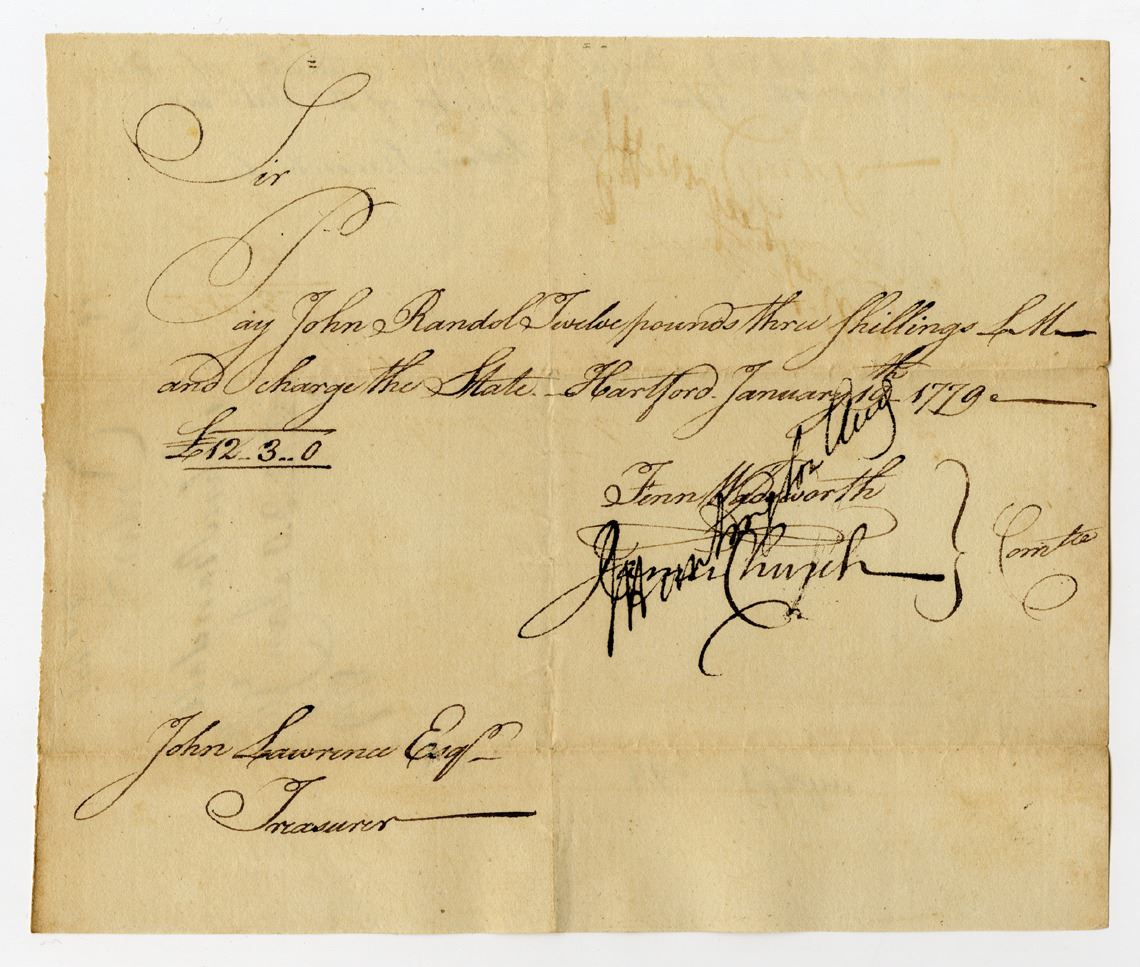 Sir
Pay John Randol Twelve pounds three Shillings L.M
and charge the State. Hartford January 19th 1779.
£12..3..0
Fenn Wadsworth
James Church
Comtee
John Lawrence Esqr
Treasurer